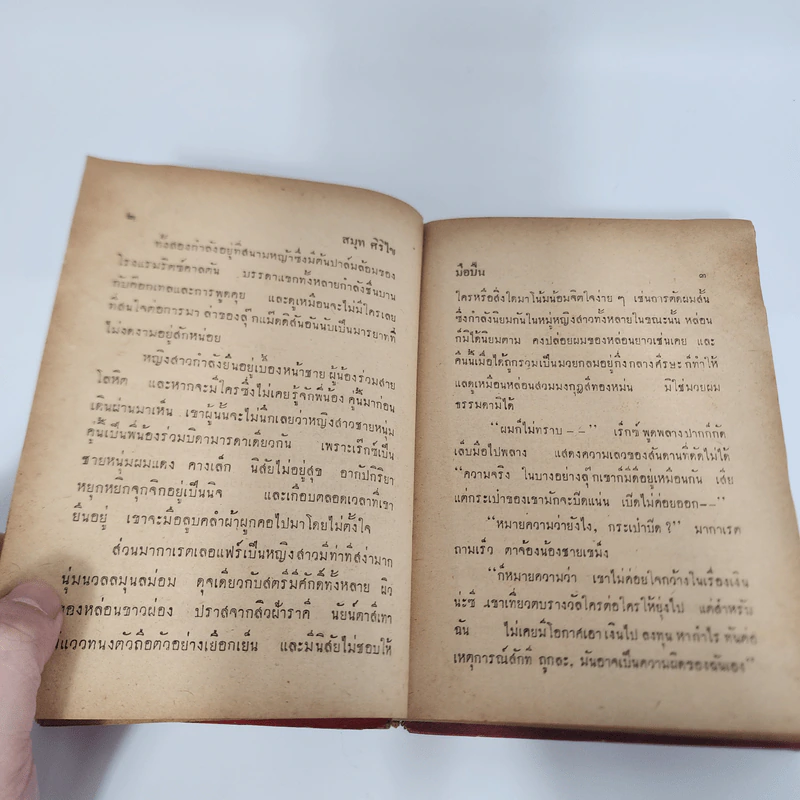 ๒
สมุท ศิริไข
ทั้งสองกำลังอยู่ที่สนามหญ้าซึ่งมีต้นปาล์มล้อมของ
โรงแรมริตซ์คาลตัน บรรดาแขกทั้งหลายกำลังชื่นบาน
กับค๊อกเทลและการพูดคุย และดูเหมือนจะไม่มีใครเลย
ที่สนใจต่อการมา ลาของลุ๊กแม๊ดดิสันอันนับเป็นมารยาทที่
ไม่งดงามอยู่สักหน่อย
หญิงสาวกำลังยืนอยู่เบื้องหน้าชาย ผู้น้องร่วมสาย
โลหิต และหากจะมีใครซึ่งไม่เคยรู้จักพี่น้อง คู่นี้มาก่อน
เดินผ่านมาเห็น เขาผู้นั้นจะไม่นึกเลยว่าหญิงสาวชายหนุ่ม
คู่นี้เป็นพี่น้องร่วมบิดามารดาเดียวกัน เพราะเร๊กซ์เป็น
ชายหนุ่มผมแดง คางเล็ก นิสัยไม่อยู่สุข อากัปกิริยา
หยุกหยิกจุกจิกอยู่เป็นนิจ และเกือบตลอดเวลาที่เขา
ยืนอยู่ เขาจะมือลูบคลำผ้าผูกคอไปมาโดยไม่ตั้งใจ
ส่วนมากาเรตเลอแฟร์เป็นหญิงสาวมีท่าที่สง่ามาก
นุ่มนวลสมุนลม่อม ดุจเดียวกับสตรีมีศักดิ์ทั้งหลาย ผิว
ของหล่อนขาวผ่อง ปราสจากสิวฝ้าราคี นัยน์ตาสีเทา
แววทนงตัวถือตัวอย่างเยือกเย็น และมีนิสัยไม่ชอบให้
มือปืน
๓
ใครหรือสิ่งใดมาโน้มน้อมจิตใจง่าย ๆ เช่นการตัดผมสั้น
ซึ่งกำลังนิยมกันในหมู่หญิงสาวทั้งหลายในขณะนั้น หล่อน
ก็มิได้นิยมตาม คงปล่อยผมของหล่อนยาวเช่นเคย และ
คืนนี้เมื่อได้ถูกรวมเป็นมวยกลมอยู่กึ่งกลางศีรษะ ก็ทำให้
แลดูเหมือนหล่อนสวมมงกุฎสีทองหม่น มิใช่มวยผม
ธรรมดามิได้
“ผมก็ไม่ทราบ——” เร๊กซ์ พูดพลางปากก็กัด
เล็บมือไปพลาง แสดงความเลวของสันดานที่ดัดไม่ได้
“ความจริง ในบางอย่างลุ๊กเขาก็มีดีอยู่เหมือนกัน เสีย
แต่กระเป๋าของเขามักจะบีดแน่น เบีดไม่ค่อยออก——”
“หมายความว่ายังไง, กระเป๋าบีด ?” มากาเรต
ถามเร็ว ตาจ้องน้องชายเขม็ง
“ก็หมายความว่า เขาไม่ค่อยใจกว้างในเรื่องเงิน
น่ะซี เขาเที่ยวตบรางวัลใครต่อใครให้ยุ่งไป แต่สำหรับ
ฉัน ไม่เคยมีโอกาศเอา เงินไป ลงทุน หากำไร ทันต่อ
เหตุการณ์สักที ถูกละ, มันอาจเป็นความผิดของฉันเอง”